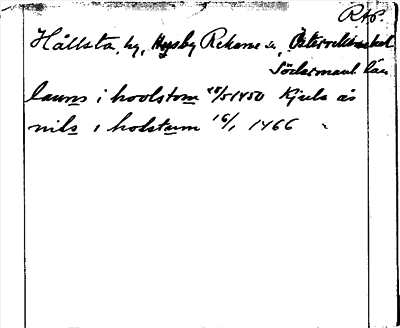 RAP.
Hållsta, by, Husby Rekarne sn, Österrekarne hd
Södermanl. län
laurns i hoolstom 18/5 1450 Kjula ås
nils i holstum 16/1 1466